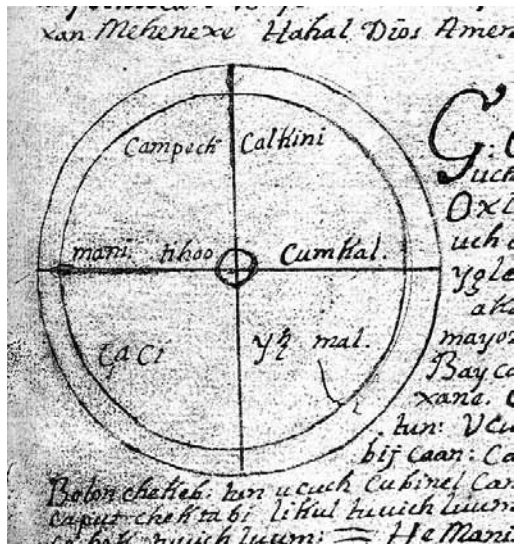 xan Mehenexe Hahal Dios Amen
Campech Calkini
mani. tihoo Cumkal.
mal.
G:
uch
Oxl
uch
ygle
aka
mayor
Bay ca
xana.
tun: Ucu
bij caan: Ca
Bolon chekeb: tun ucuch Cubinel Can
caput chektabi likul tuuich luum
tuuich luum: = He Mani